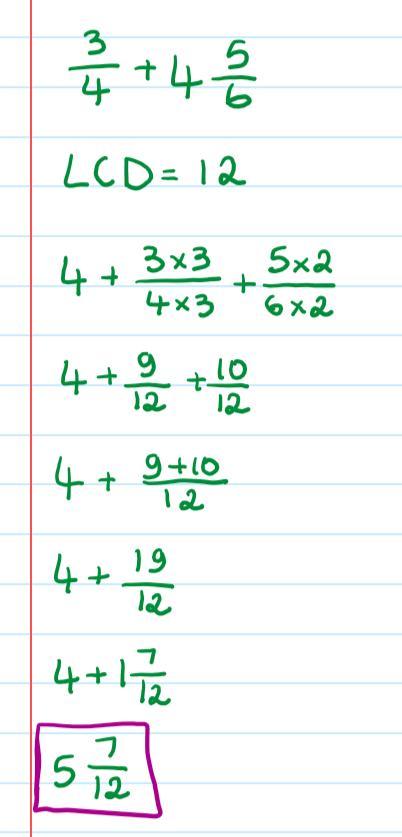 3/4 + 4 5/6
LCD = 12
4 + 3×3/4×3 + 5×2/6×2
4 + 9/12 + 10/12
4 + 9+10/12
4 + 19/12
4 + 1 7/12
5 7/12